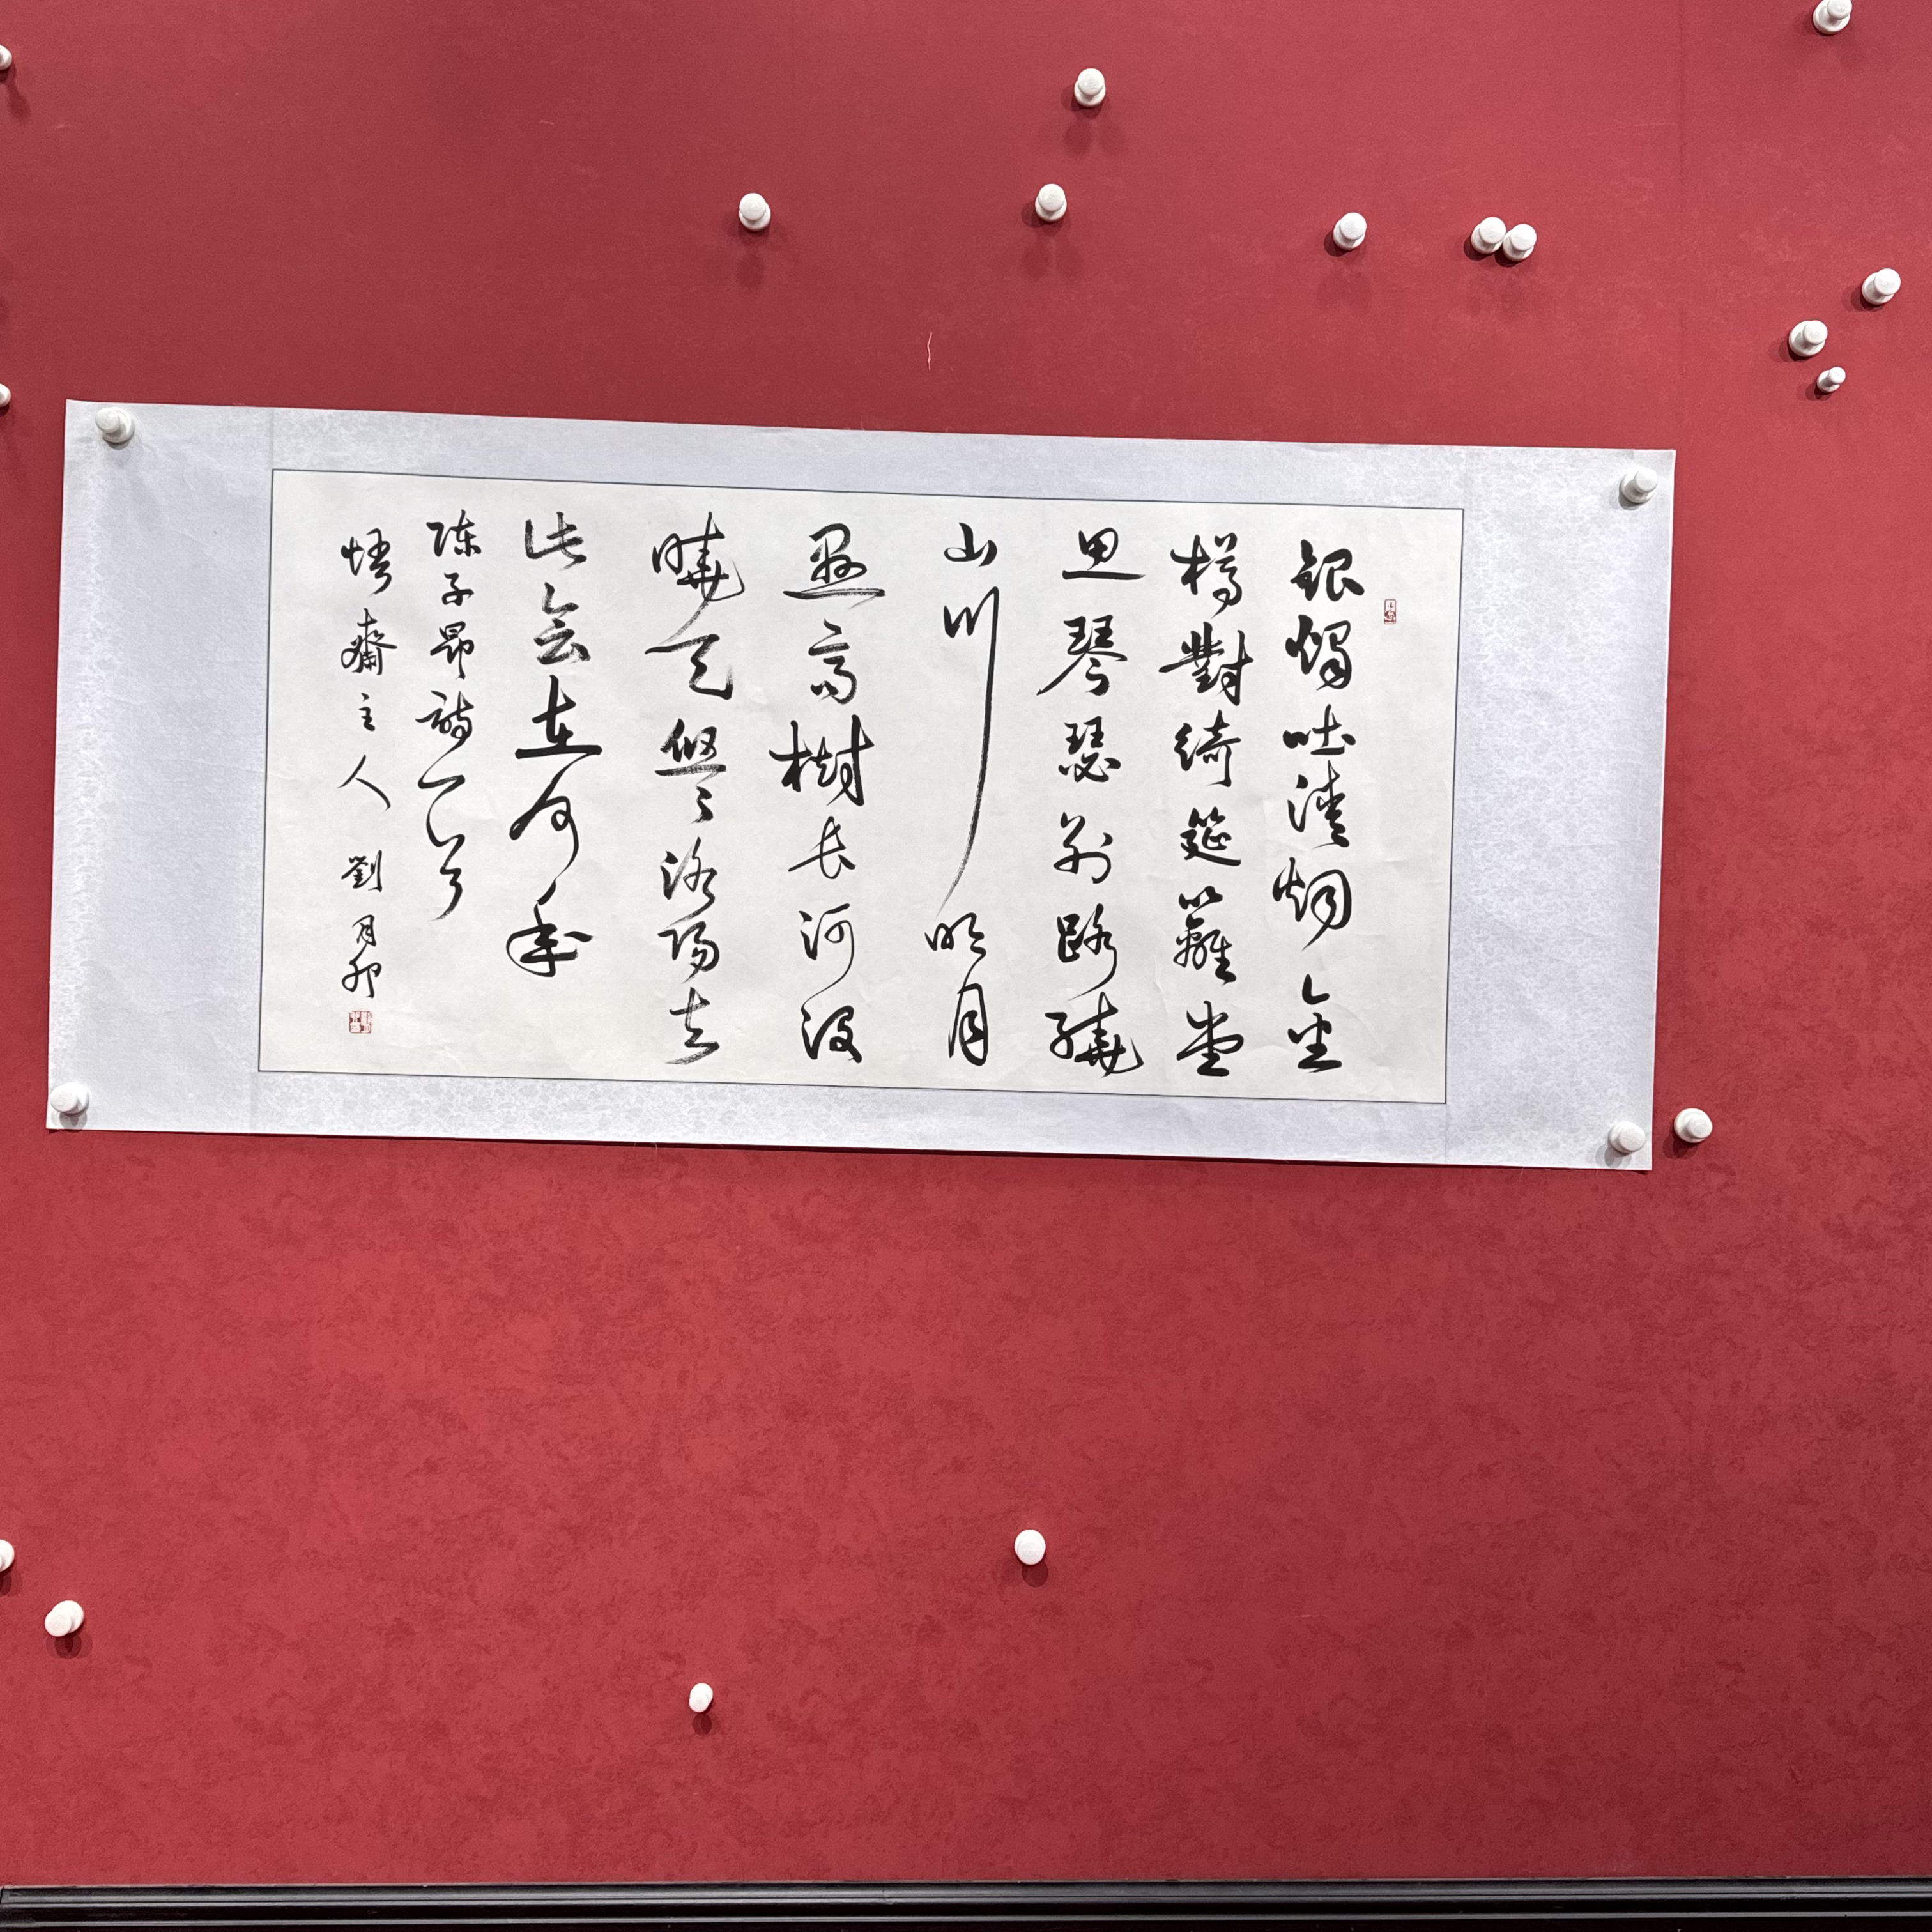 銀燭吐清烟金
樽對綺筵籬堂
思琴瑟别路繞
山川明月
悬高樹长河没
曉天悠々洛陽去
此会在何年
陈子昂詩一首
悟齋主人 劉月卯